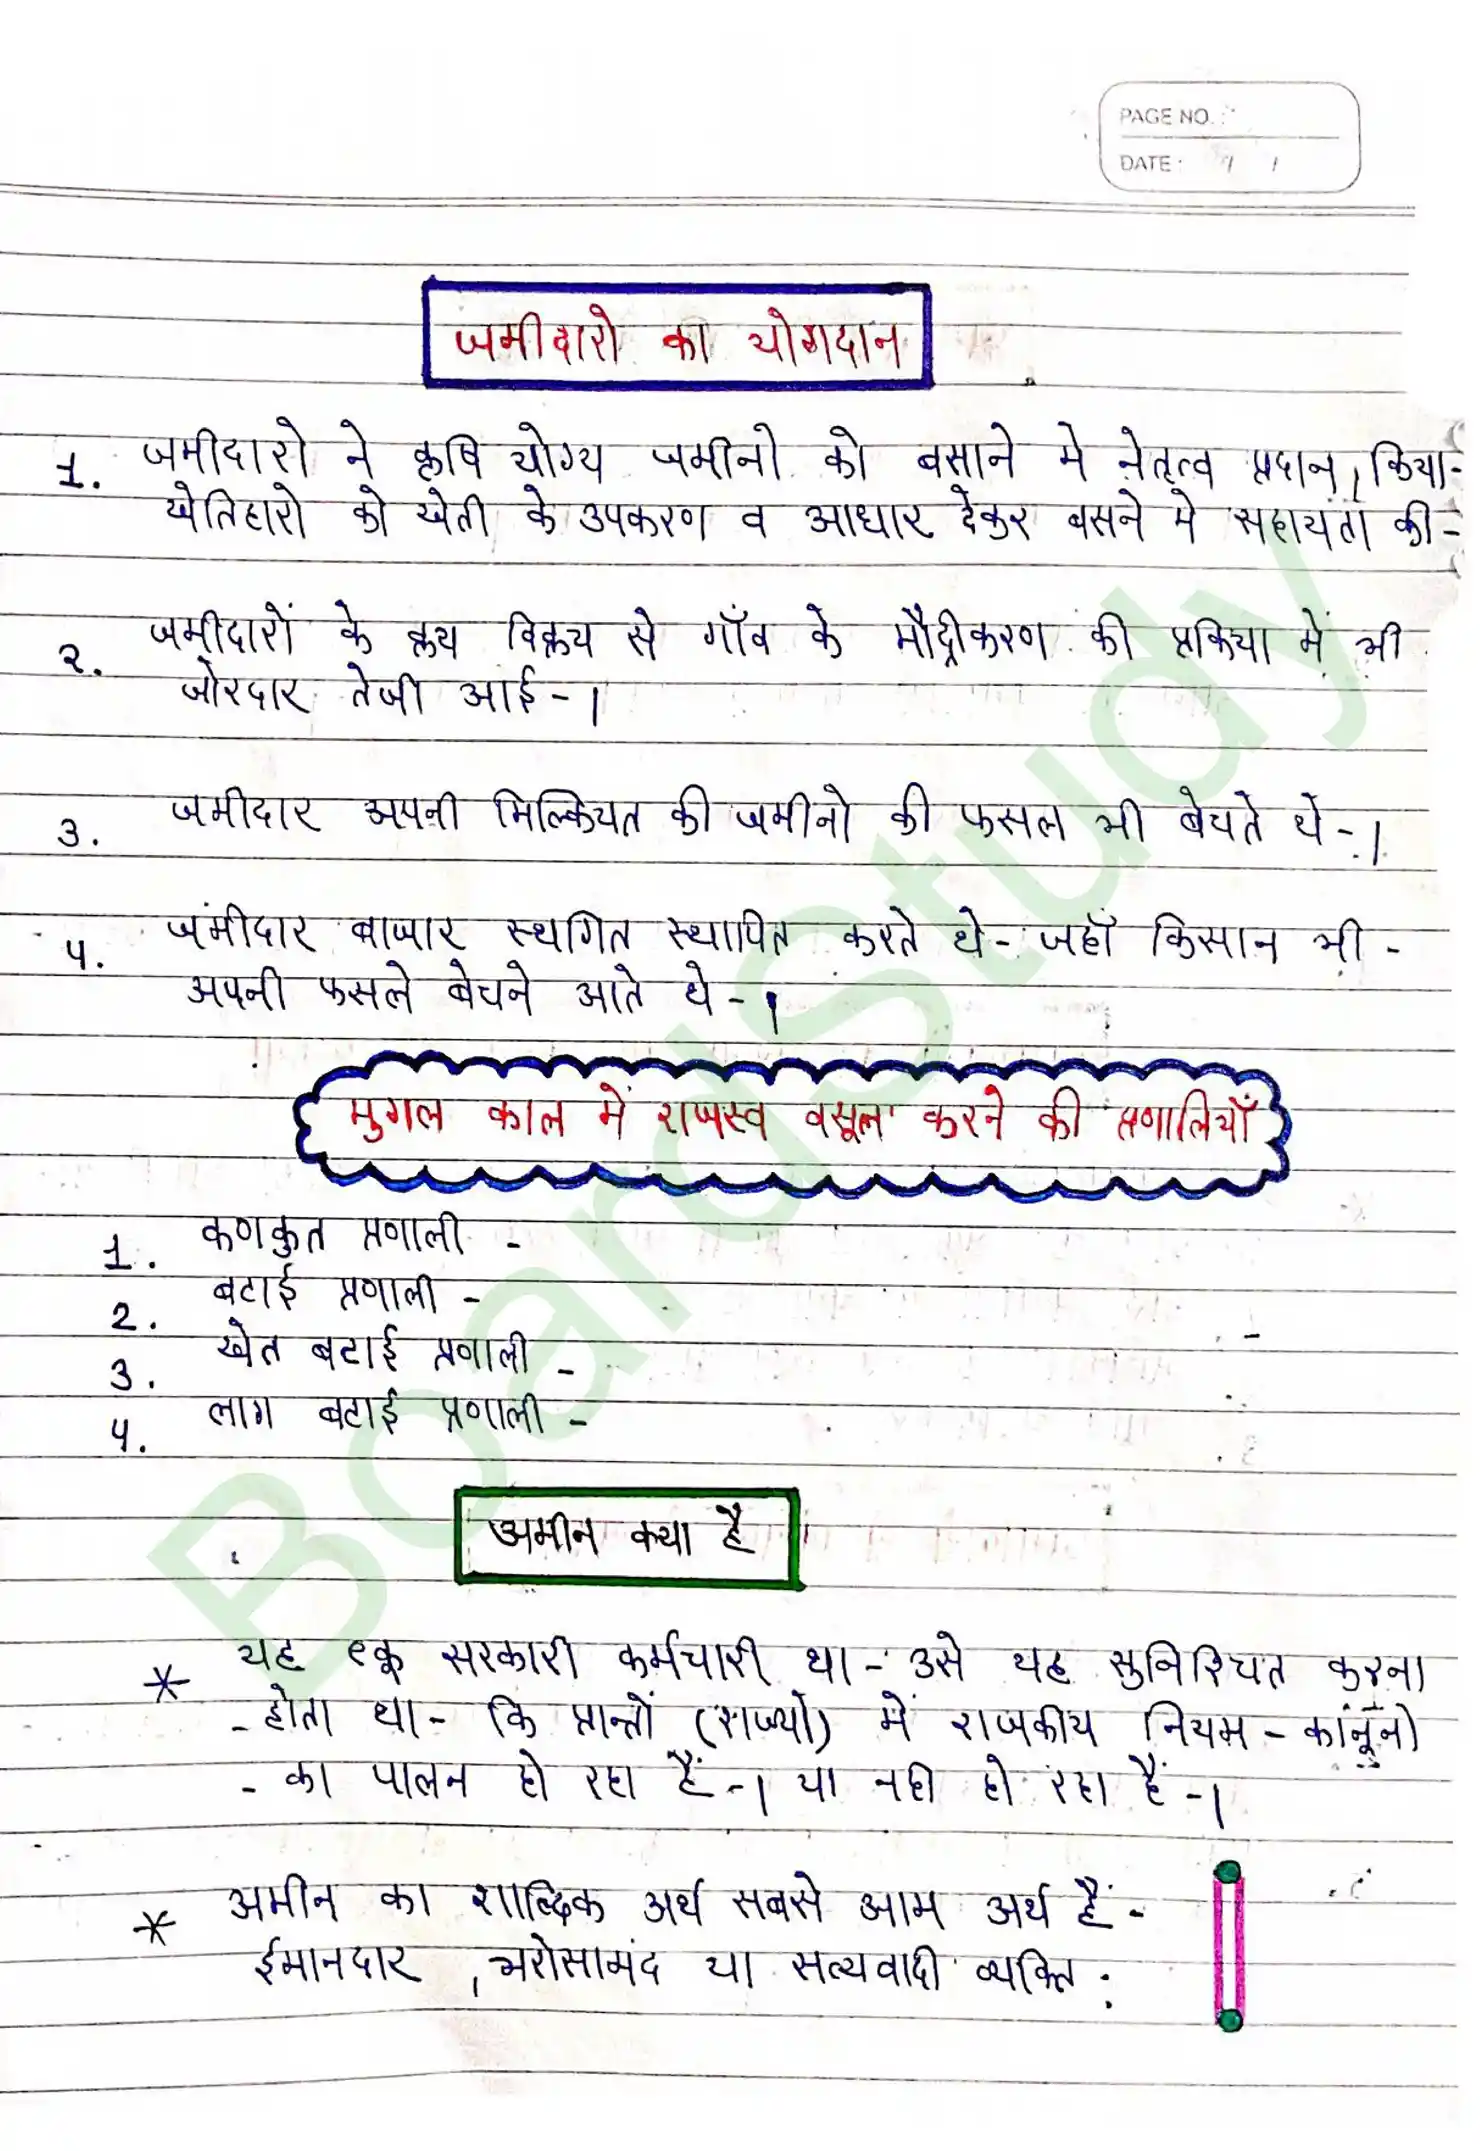 PAGE NO. :
DATE : / /
जमीदारो का योगदान
1. जमीदारो ने कृषि योग्य जमीनो को बसाने मे नेतृत्व प्रदान, किया-
खेतिहारो को खेती के उपकरण व आधार देकुर बसने मे सहायता की-
२. जमीदारों के क्रय विक्रय से गाँव के मौद्रीकरण की प्रकिया में भी
जोरदार तेजी आई-।
3. जमीदार अपनी मिल्कियत की जमीनो की फसल भी बेचते थे-।
4. जमीदार बाजार स्थगित स्थापित करते थे- जहाँ किसान भी -
अपनी फसले बेचने आते थे-।
मुगल काल में राजस्व वसूल करने की प्रणालियाँ
1. कणकुत प्रणाली -
2. बटाई प्रणाली -
3. खेत बटाई प्रणाली -
4. लाग बटाई प्रणाली -
अमीन क्या है
* यह एक सरकारी कर्मचारी था- उसे यह सुनिश्चित करना
- होता था- कि प्रान्तों (राज्यो) में राजकीय नियम - कांनूनो
- का पालन हो रहा हैं-। या नही हो रहा हैं-।
* अमीन का शाब्दिक अर्थ सबसे आम अर्थ हैं-
ईमानदार , भरोसामंद या सत्यवादी व्यक्ति :
BoardStudy